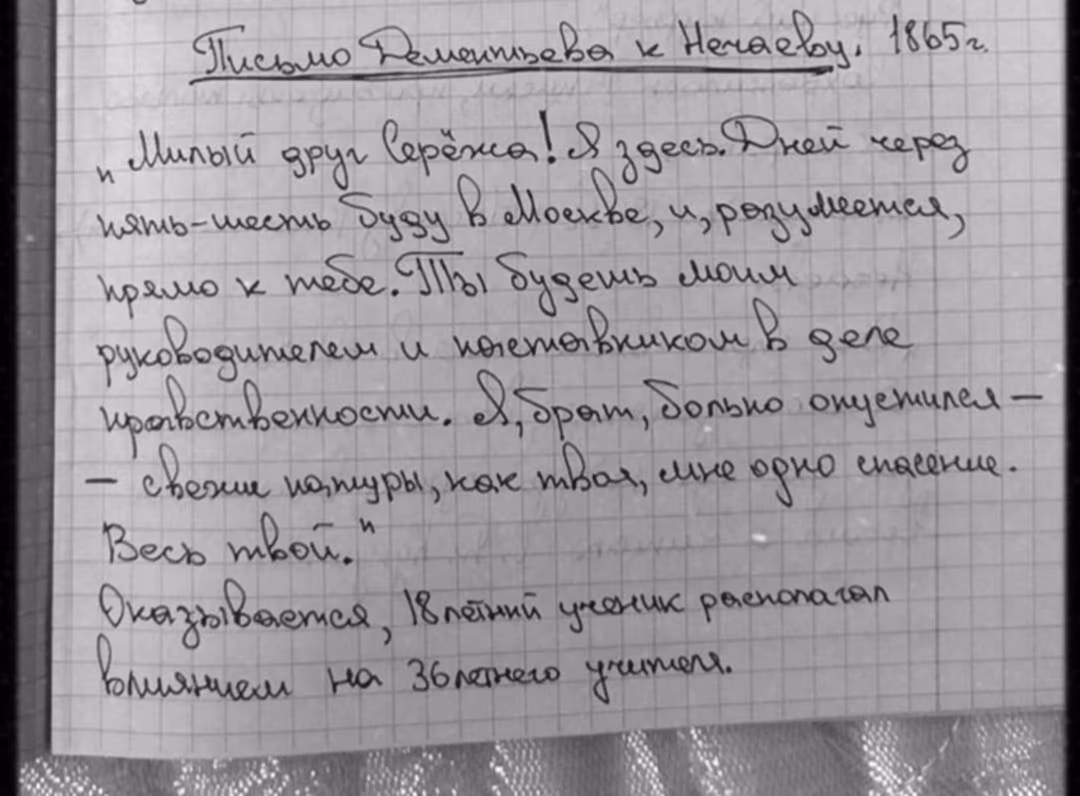 Письмо Дементьева к Нечаеву. 1865г.
„Милый друг Серёжа! Я здесь. Дней через
пять-шесть буду в Москве, и, разумеется,
прямо к тебе. Ты будешь моим
руководителем и наставником в деле
нравственности. Я, брат, больно опустился –
– свежие натуры, как твоя, мне одно спасение.
Весь твой."
Оказывается, 18летний ученик располагал
влиянием на 36летнего учителя.